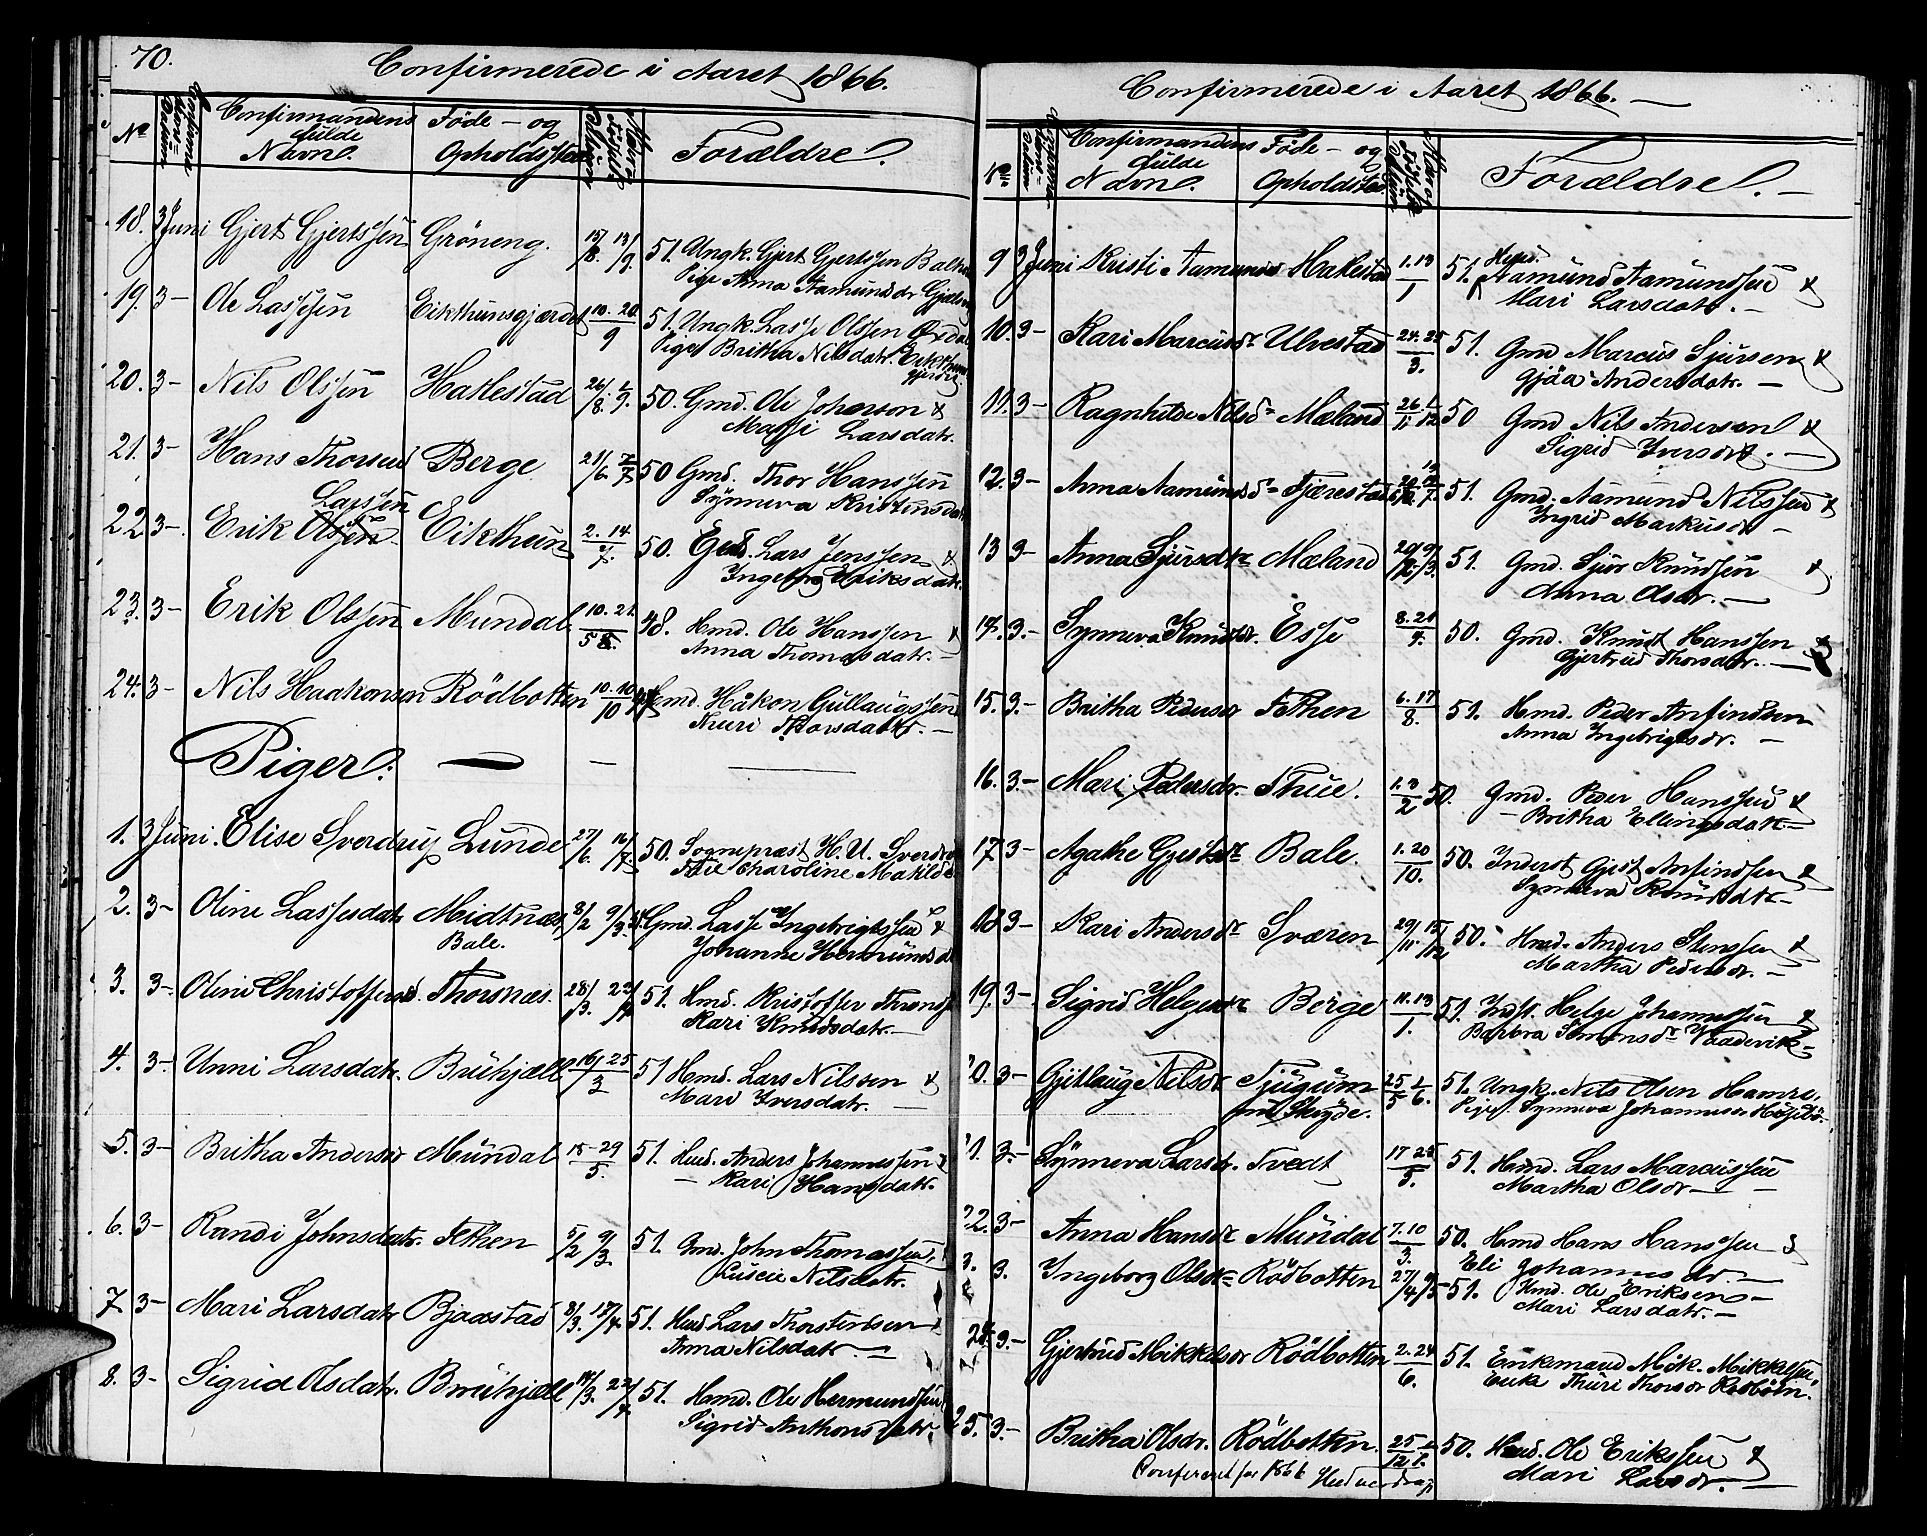 70.
Confirmerede i Aaret 1866.
No Confirmandens fulde Navn. Føde- og Opholdssted Forældre.
18. 3 Juni Gjert Gjertssen Gröneng. 15/8. 13/9. 51. Ungk. Gjert Gjertssen
Pige Anna Aamundsdr
19. 3 - Ole Lassesen Eikthunsgjærdet 10. 20/9 51. Ungk. Lasse Olssen
Pige Britha Nilsdatr.
20. 3 - Nils Olssen Haklestad 26/8. 1/9. 50. Gmd. Ole Johnson &
Larsdatr.
21. 3 - Hans Thorsen Berge 21/6. 7/7. 50 Gmd. Thor Hanssen
Synneva Kristensdatr
Larssen
22 3 - Erik Olssen Eikthun 2. 14/7. 50. Lars Jenssen &
Ingeborg Eriksdatr.
23. 3 - Erik Olssen Mundal 10. 21. 48. Hmd. Ole Hanssen &
Anna Thomasdatr. -
24. 3 - Nils Haakonsen Rödbotten 10. 10/10 Hmd. Håkon Gullaugssen
Thorsdatr. -
Piger. -
1. 3 Juni. Elise Sverdrup Lunde 27/6. 16/7. 50. Sogneprest H. U. Sverdrup
Charoline
2. 3 - Oline Lassesdatr Midtnæs, 8/2 9/3. Gmd. Lasse Ingebrigtssen &
Bale. Johanne
3. 3 - Oline Christoffersd Thorsnæs. 28/3. 23/4 51. Hmd. Kristoffer
Kari Knudsdatr. -
4. 3 - Unni Larsdatr. 16/ 25/3 51 Hmd. Lars Nilssen &
Mari Iversdatr. -
5. 3 - Britha Andersd Mundal 18 - 29/5. 51. Hmd. Anders Johannessen &
- Kari Hansdatr.
6. 3 - Randi Johnsdatr. Fethen 5/2 9/3. 51. Gmd. John Thomassen
Nilsdatr.
7 3 - Mari Larsdatr Bjaastad 8/3. 17/4 51. Hmd. Lars Thorstensen
Anna Nilsdatr. -
8. 3 - Sigrid Olsdatr. 14/3. 22/4 51. Hmd. Ole Hermundssen
Sigrid Anthonsdatr.
Confirmerede i Aaret 1866. -
No Confirmandens fulde Navn. Føde- og Opholdsted Forældre. -
9 3 Juni Kristi Aamundsd Haklestad 1. 13/1 51. Hmd. Aamund Aamundssen &
Mari Larsdatr. -
10. 3 - Kari Marcusdr Ulvestad 24. 25/3. 51. Gmd Marcus Sjursen &
Gjöa Andersdatr. -
11. 3 - Ragnhilde Nilsd Mæland 26/11 1/12 50 Gmd Nils Andersen &
Sigrid Iversdr. -
12. 3 - Anna Aamundsd Fjærestad 51. Gmd. Aamund Nilssen &
Ingrid Markusdr -
13 3 - Anna Sjursdtr Mæland 20/2 9/3. 51. Gmd. Sjur Knudsen &
Anna Olsdr. -
14. 3 - Synneva Knudsdr. Esse 8. 21/4. 50. Gmd. Knud Hanssen &
Gjertrud Thorsdr. -
15. 3. - Britha Pedersdr Fethen 6. 17/8. 51. Hmd. Peder Anfindsen
Anna Ingebrigtsdr. -
16. 3. - Mari Pedersdr. Thue. 1. 3/2 50. Gmd. Peder Hanssen &
- Britha Ellingsdatr -
17 3 - Agathe Gjestsdr Bale. 1. 20/10. 50. Inderst Gjest Anfindsen &
Synneva Knudsdtr -
18 3 - Kari Andersdr Sværen 29/11 15/12 50. Hmd. Anders Stenssen &
Martha Pedersdr. -
19. 3 - Sigrid Helgesdr Berge 11. 13/1. 51. Indst. Helge Johannessen &
Barbra
20. 3 - Gjetlaug Nilsdr Tjugum 25/5 1/6. 51. Ungk. Nils Olsen Hamre.
Pige Synneva Johannesdr
21. 3. - Synneva Larsdr. Tvedt 17 25/5. 51. Hmd. Lars Marcussen
Martha Olsdr -
22. 3 - Anna Hansdr Mundal 7. 10/3. 50. Hmd Hans Hanssen &
Eli Johannesdr. -
3. 3. Ingeborg Olsdtr Rödbotten 27/4 9/5 51. Hmd. Ole Eriksen -
Mari Larsdatr. -
24. 3 - Gjertrud Mikkelsdr Rödbotten 2. 24/6. 51. Enkemand Mik. Mikkelsen
Enke Thuri Thorsdr
25. 3. - Britha Olsdr. Rödbotten. 25/12 50. Hmd. Ole Erikssen &
Mari Larsdr. -
Conferert for 1866